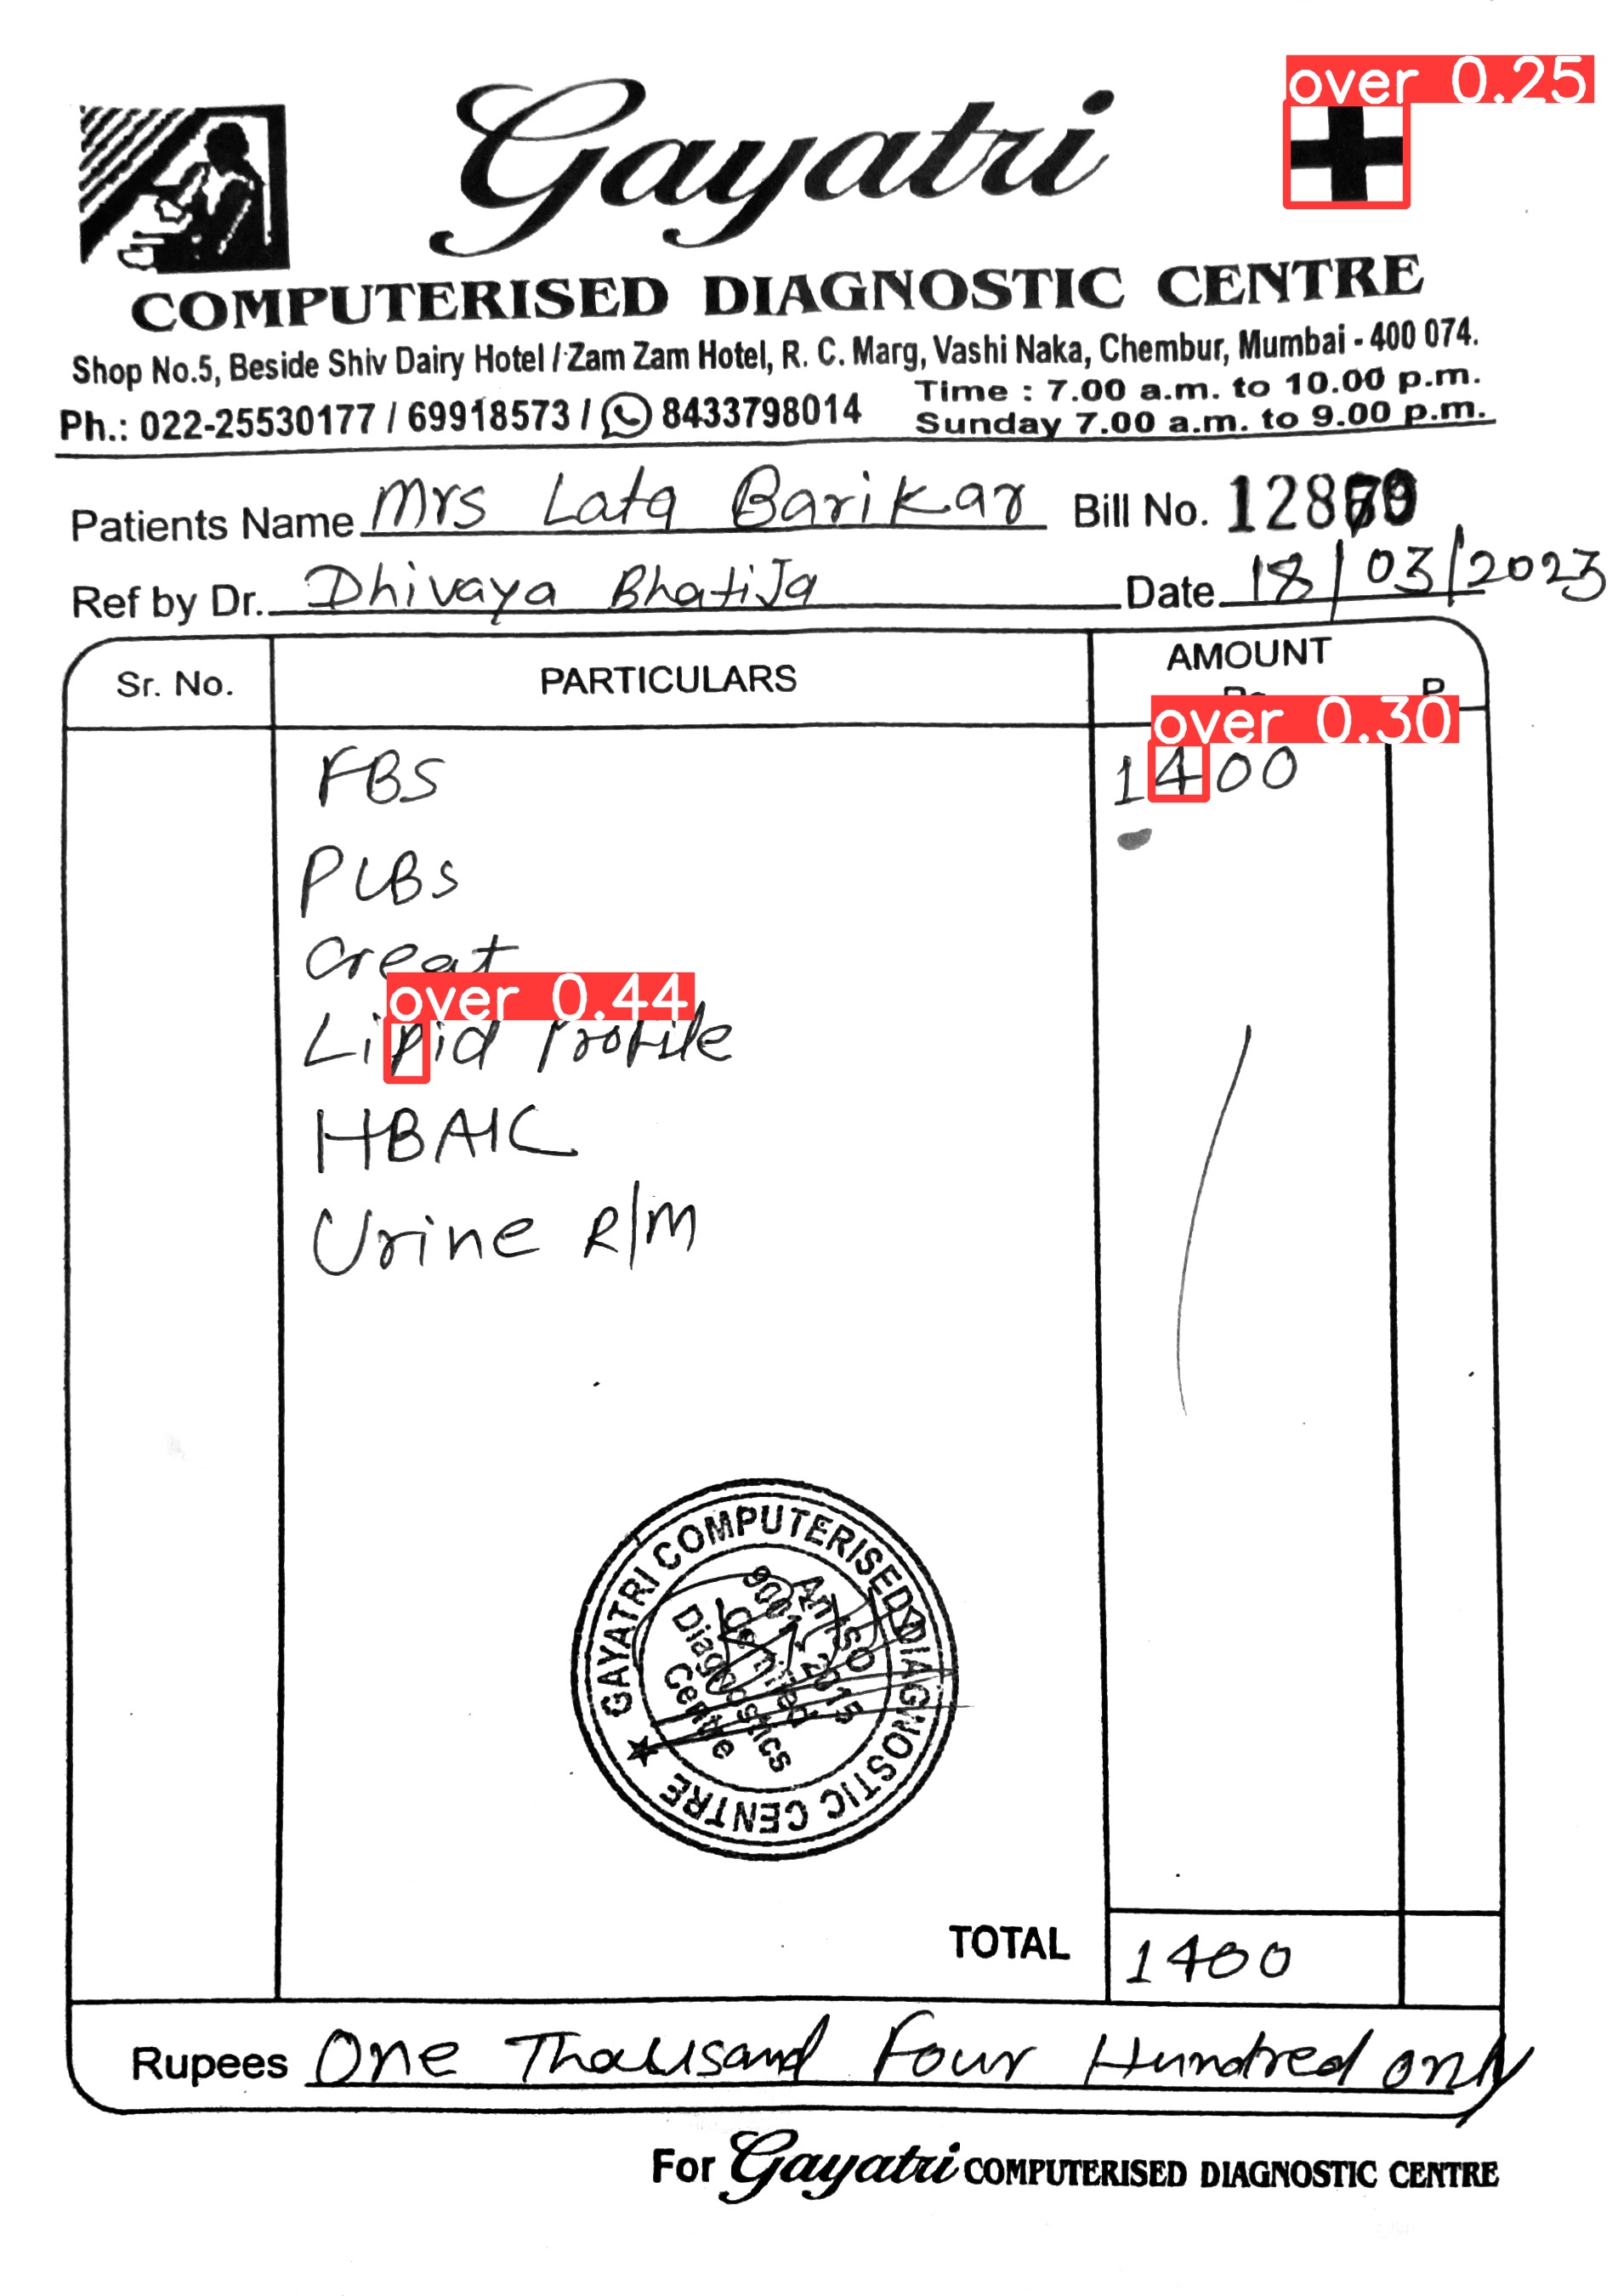 over 0.25
Gayatri
COMPUTERISED DIAGNOSTIC CENTRE
Shop No.5, Beside Shiv Dairy Hotel / Zam Zam Hotel, R. C. Marg, Vashi Naka, Chembur, Mumbai - 400 074.
Ph.: 022-25530177 / 69918573 / 8433798014
Time : 7.00 a.m. to 10.00 p.m.
Sunday 7.00 a.m. to 9.00 p.m.
Patients Name Mrs Lata Barikar Bill No.
Ref by Dr. Dhivaya Bhatija Date 18/03/2023
Sr. No. PARTICULARS AMOUNT
P
over 0.30
FBS 1400
PLBS
Creat
over 0.44
Lipid Profile
HBAIC
Urine R/M
GAYATRI COMPUTERISED DIAGNOSTIC CENTRE
An ISO
9001:2015
Certified
Diagnostics
Centre
TOTAL 1400
Rupees One Thousand Four Hundred only
For Gayatri COMPUTERISED DIAGNOSTIC CENTRE